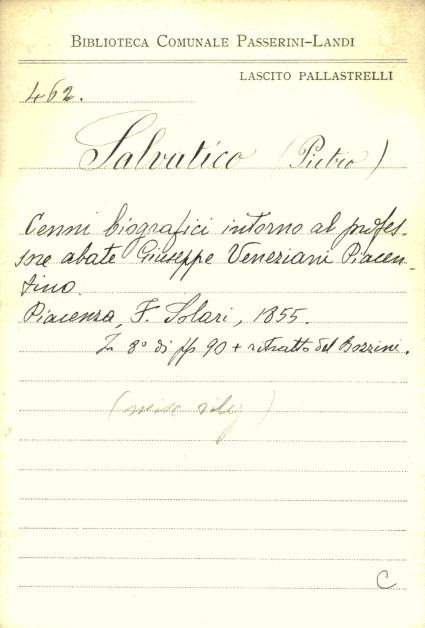 BIBLIOTECA COMUNALE PASSERINI-LANDI
LASCITO PALLASTRELLI
462.
Salvatico (Pietro)
Cenni biografici intorno al profes-
sore abate Giuseppe Veneziani Piacen-
tino.
Piacenza, F. Solari, 1855.
8° di pp 90 + ritratto del Bozzini.
(misc
C